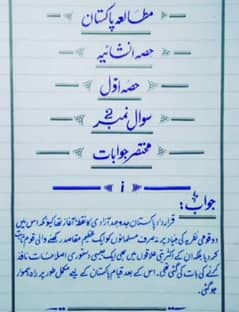 مطالعہ پاکستان
حصہ انشائیہ
حصہ اوّل
سوال نمبر 2
مختصر جوابات
i
جواب:
قرارداد پاکستان جدوجہد آزادی کا نقطۂ آغاز تھا کیونکہ اس میں
دو قومی نظریہ کی بنیاد پر نہ صرف مسلمانوں کو ایک عظیم مقاصد رکھنے والی قوم ثابت
کر دیا بلکہ ان کے اکثریتی علاقوں میں بھی ایک جیسی دستوری اصلاحات نافذ
کرنے کی بات کی گئی تھی۔ اس کے بعد قیام پاکستان کے لیے مکمل طور پر راہ ہموار
ہو گئی۔